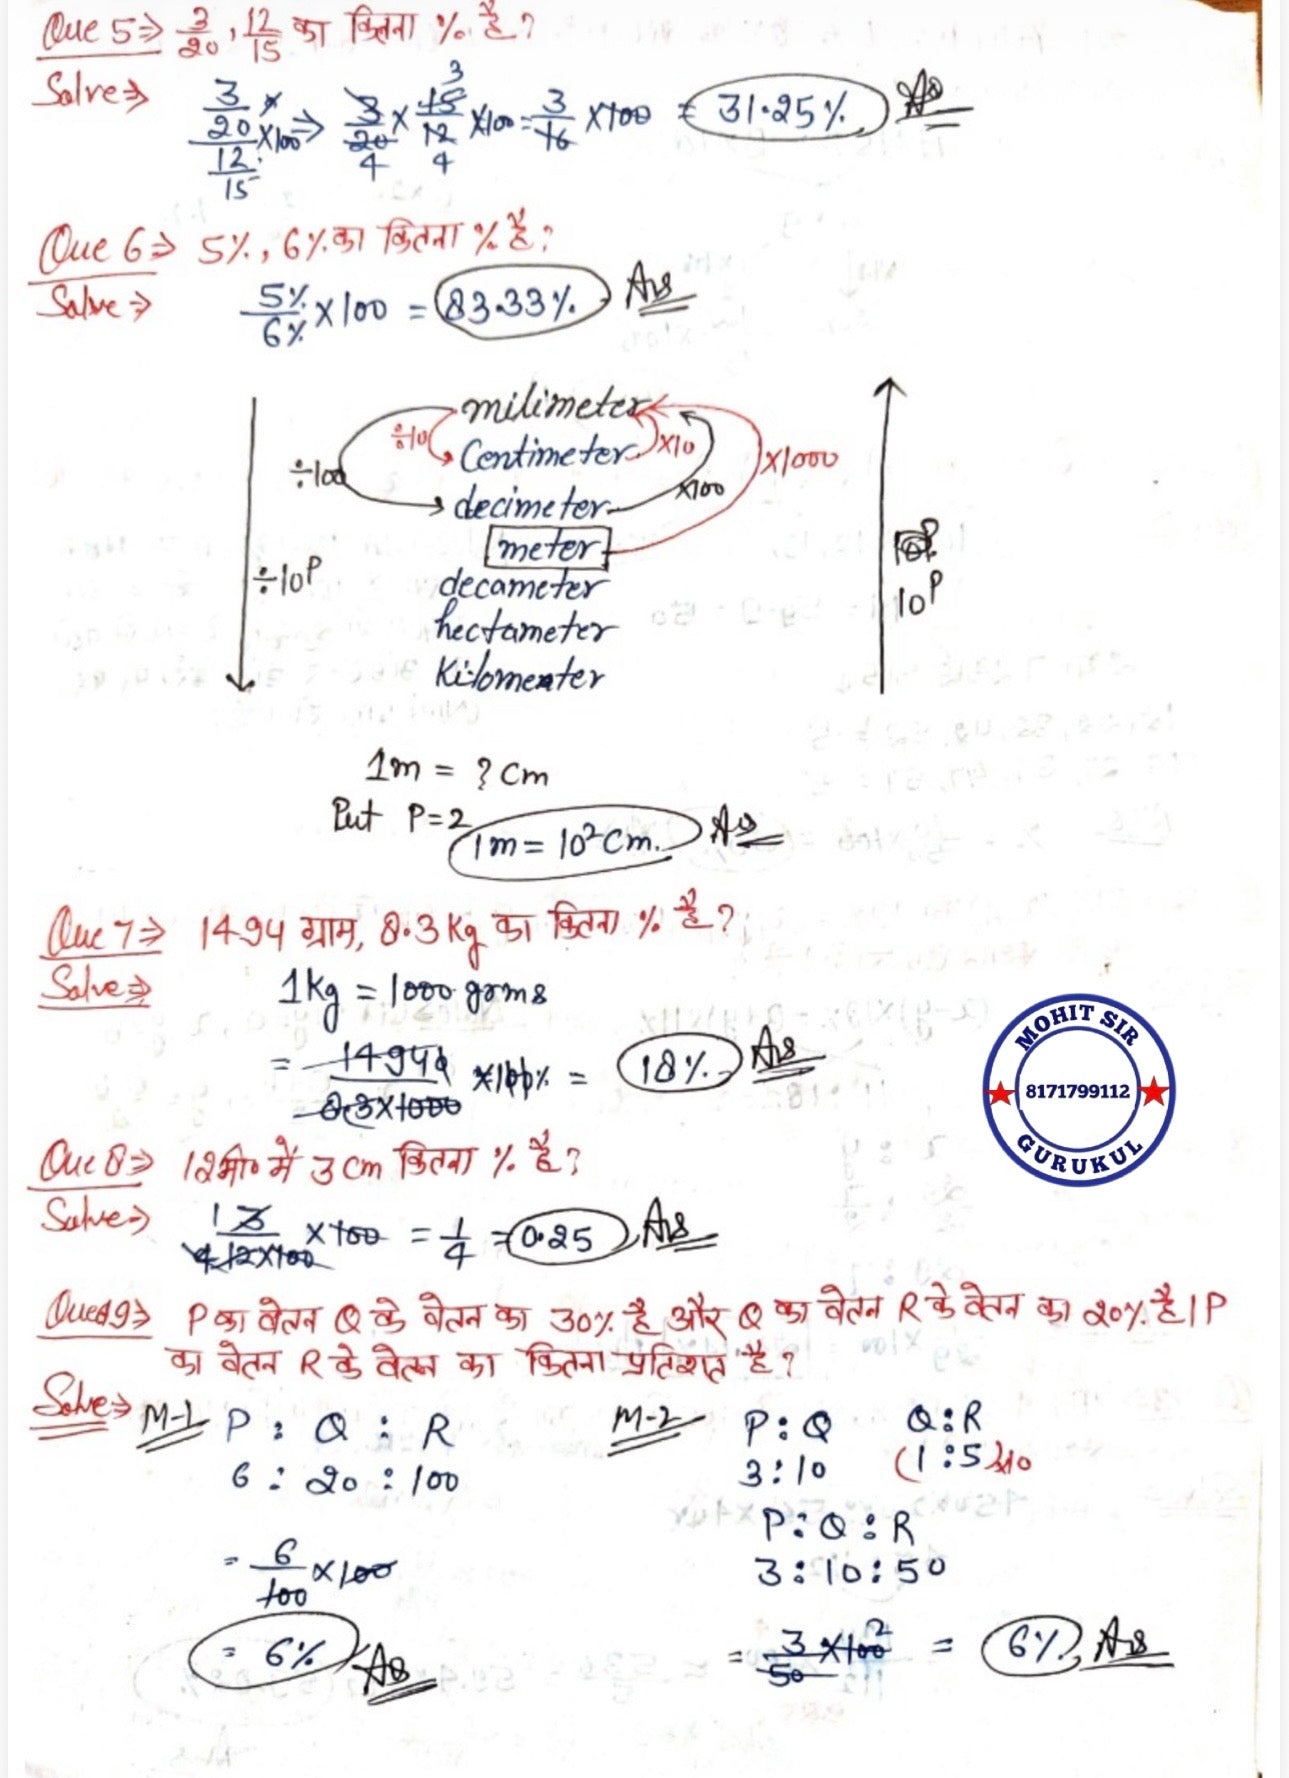 Que 5⇒ 3/20, 12/15 का कितना % है?
Solve⇒ (3/20)/(12/15) ×100 ⇒ 3/20 × 15/12 ×100 = 3/16 ×100 = 31.25% Ans
3
4 4
Que 6⇒ 5%, 6% का कितना % है?
Solve⇒ 5%/6% ×100 = 83.33% Ans
milimeter
÷10 Centimeter ×10 ×1000
÷100 decimeter ×100
meter
÷10ᴾ decameter 10ᴾ
hectameter
Kilometer
1m = ? Cm
Put P=2
1m = 10² Cm. Ans
Que 7⇒ 1494 ग्राम, 8.3 Kg का कितना % है?
Solve⇒ 1Kg = 1000 grms
= 1494/8.3×1000 ×100% = 18% Ans
MOHIT SIR
8171799112
GURUKUL
Que 8⇒ 12मी० में 3 cm कितना % है?
Solve⇒ 3/12×100 ×100 = 1/4 = 0.25 Ans
1
4
Que 9⇒ P का वेतन Q के वेतन का 30% है और Q का वेतन R के वेतन का 20% है। P
का वेतन R के वेतन का कितना प्रतिशत है?
Solve⇒ M-1 P : Q : R
6 : 20 : 100
= 6/100 ×100
= 6% Ans
M-2 P:Q Q:R
3:10 (1:5)×10
P:Q:R
3:10:50
= 3/50 ×100 = 6% Ans
2